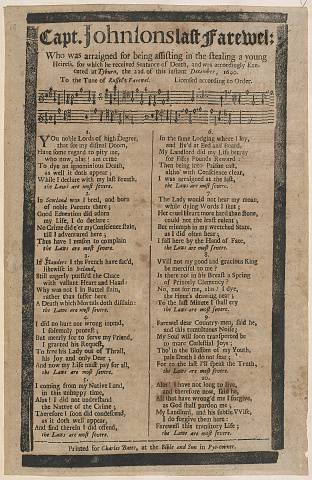 Capt. Johnsons last Farewel:
Who was arraigned for being assisting in the stealing a young
Heiress, for which he received Sentence of Death, and was accordingly Exe-
cuted at Tyburn, the 22d of this instant December, 1690.
To the Tune of Russel's Farewel. Licensed according to Order.
1.
YOu noble Lords of high Degree,
that see my dismal Doom,
Have some regard to pity me,
who now, alas! am come
To dye an ignominious Death,
as well it doth appear;
While I declare with my last Breath,
the Laws are most severe.
2.
In Scotland was I bred, and born
of noble Parents there;
Good Education did adorn
my Life, I do declare:
No Crime did e'er my Conscience stain,
till I adventured here;
Thus have I reason to complain
the Laws are most severe.
3.
In Flanders I the French have fac'd,
likewise in Ireland,
Still eagerly pursu'd the Chace
with valiant Heart and Hand:
Why was not I in Battel slain,
rather than suffer here
A Death which Mortals doth disdain:
the Laws are most severe.
4.
I did no hurt nor wrong intend,
I solemnly protest;
But merely for to serve my Friend,
I granted his Request,
To free his Lady out of Thrall,
his Joy and only Dear;
And now my Life must pay for all,
the Laws are most severe.
5.
I coming from my Native Land,
in this unhappy time,
Alas! I did not understand
the Nature of the Crime;
Therefore I soon did condescend,
as it doth well appear,
And find therein I did offend,
the Laws are most severe.
6.
In the same Lodging where I lay,
and liv'd at Bed and Board,
My Landlord did my Life betray
for Fifty Pounds Reward:
Then being into Prison cast,
altho' with Conscience clear,
I was arraigned at the last,
the Laws are most severe.
7.
The Lady would not hear my moan,
while dying Words I sent;
Her cruel Heart more hard than stone,
could not the least relent;
But triumph in my wretched State,
as I did often hear;
I fall here by the Hand of Fate,
the Laws are most severe.
8.
VVill not my good and gracious King
be merciful to me?
Is there not in his Breast a Spring
of Princely Clemency?
No, not for me, alas! I dye,
the Hour's drawing near;
To the last Minute I shall cry
the Laws are most severe.
9.
Farewel dear Country-men, said he,
and this tumultuous Noise;
My Soul will soon transported be
to more Celestial Joys;
Tho' in the Blossom of my Youth,
pale Death I do not fear;
For to the last I'll speak the Truth,
the Laws are most severe.
10.
Alas! I have not long to live,
and therefore now, said he,
All that have wrong'd me I forgive,
as God shall pardon me;
My Landlord, and his subtile VVife,
I do forgive them here:
Farewell this transitory Life;
the Laws are most severe.
Printed for Charles Bates, at the Bible and Sun in Pye-corner.